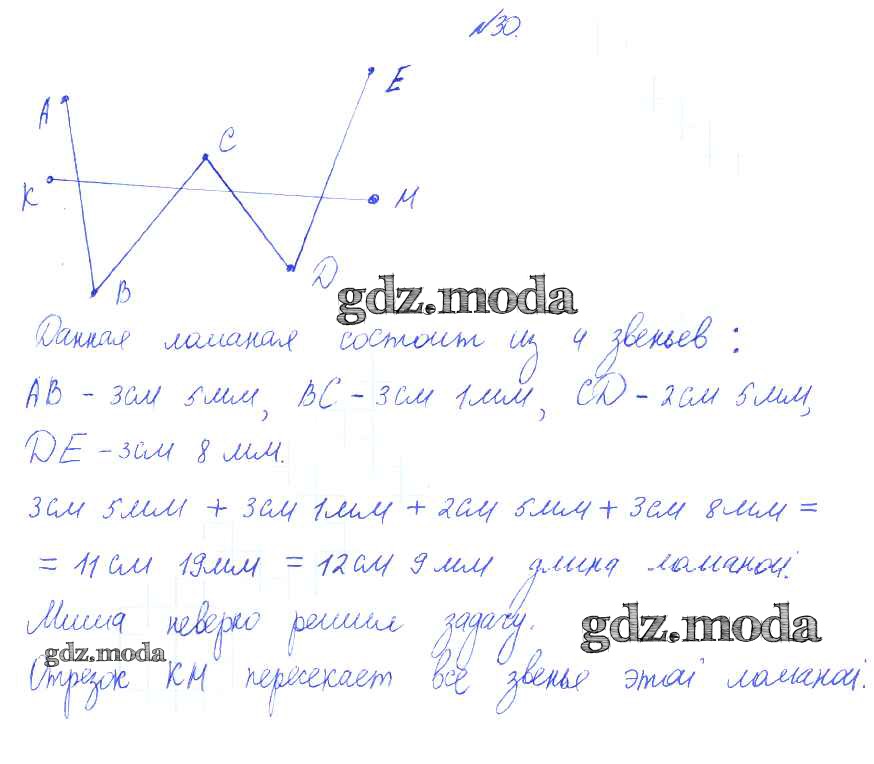 №30.
E
A
C
K
M
D
B
gdz.moda
Данная ломаная состоит из 4 звеньев:
AB - 3см 5мм, BC - 3см 1мм, CD - 2см 5мм,
DE - 3см 8 мм.
3см 5мм + 3см 1мм + 2см 5мм + 3см 8мм =
= 11см 19мм = 12см 9мм длина ломаной.
Миша неверно решил задачу.
gdz.moda
gdz.moda
Отрезок КМ пересекает все звенья этой ломаной.